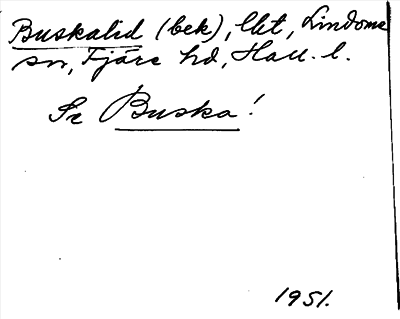 Buskalid (bek), lht, Lindome
sn, Fjäre hd, Hall. l.
Se Buska!
1951.